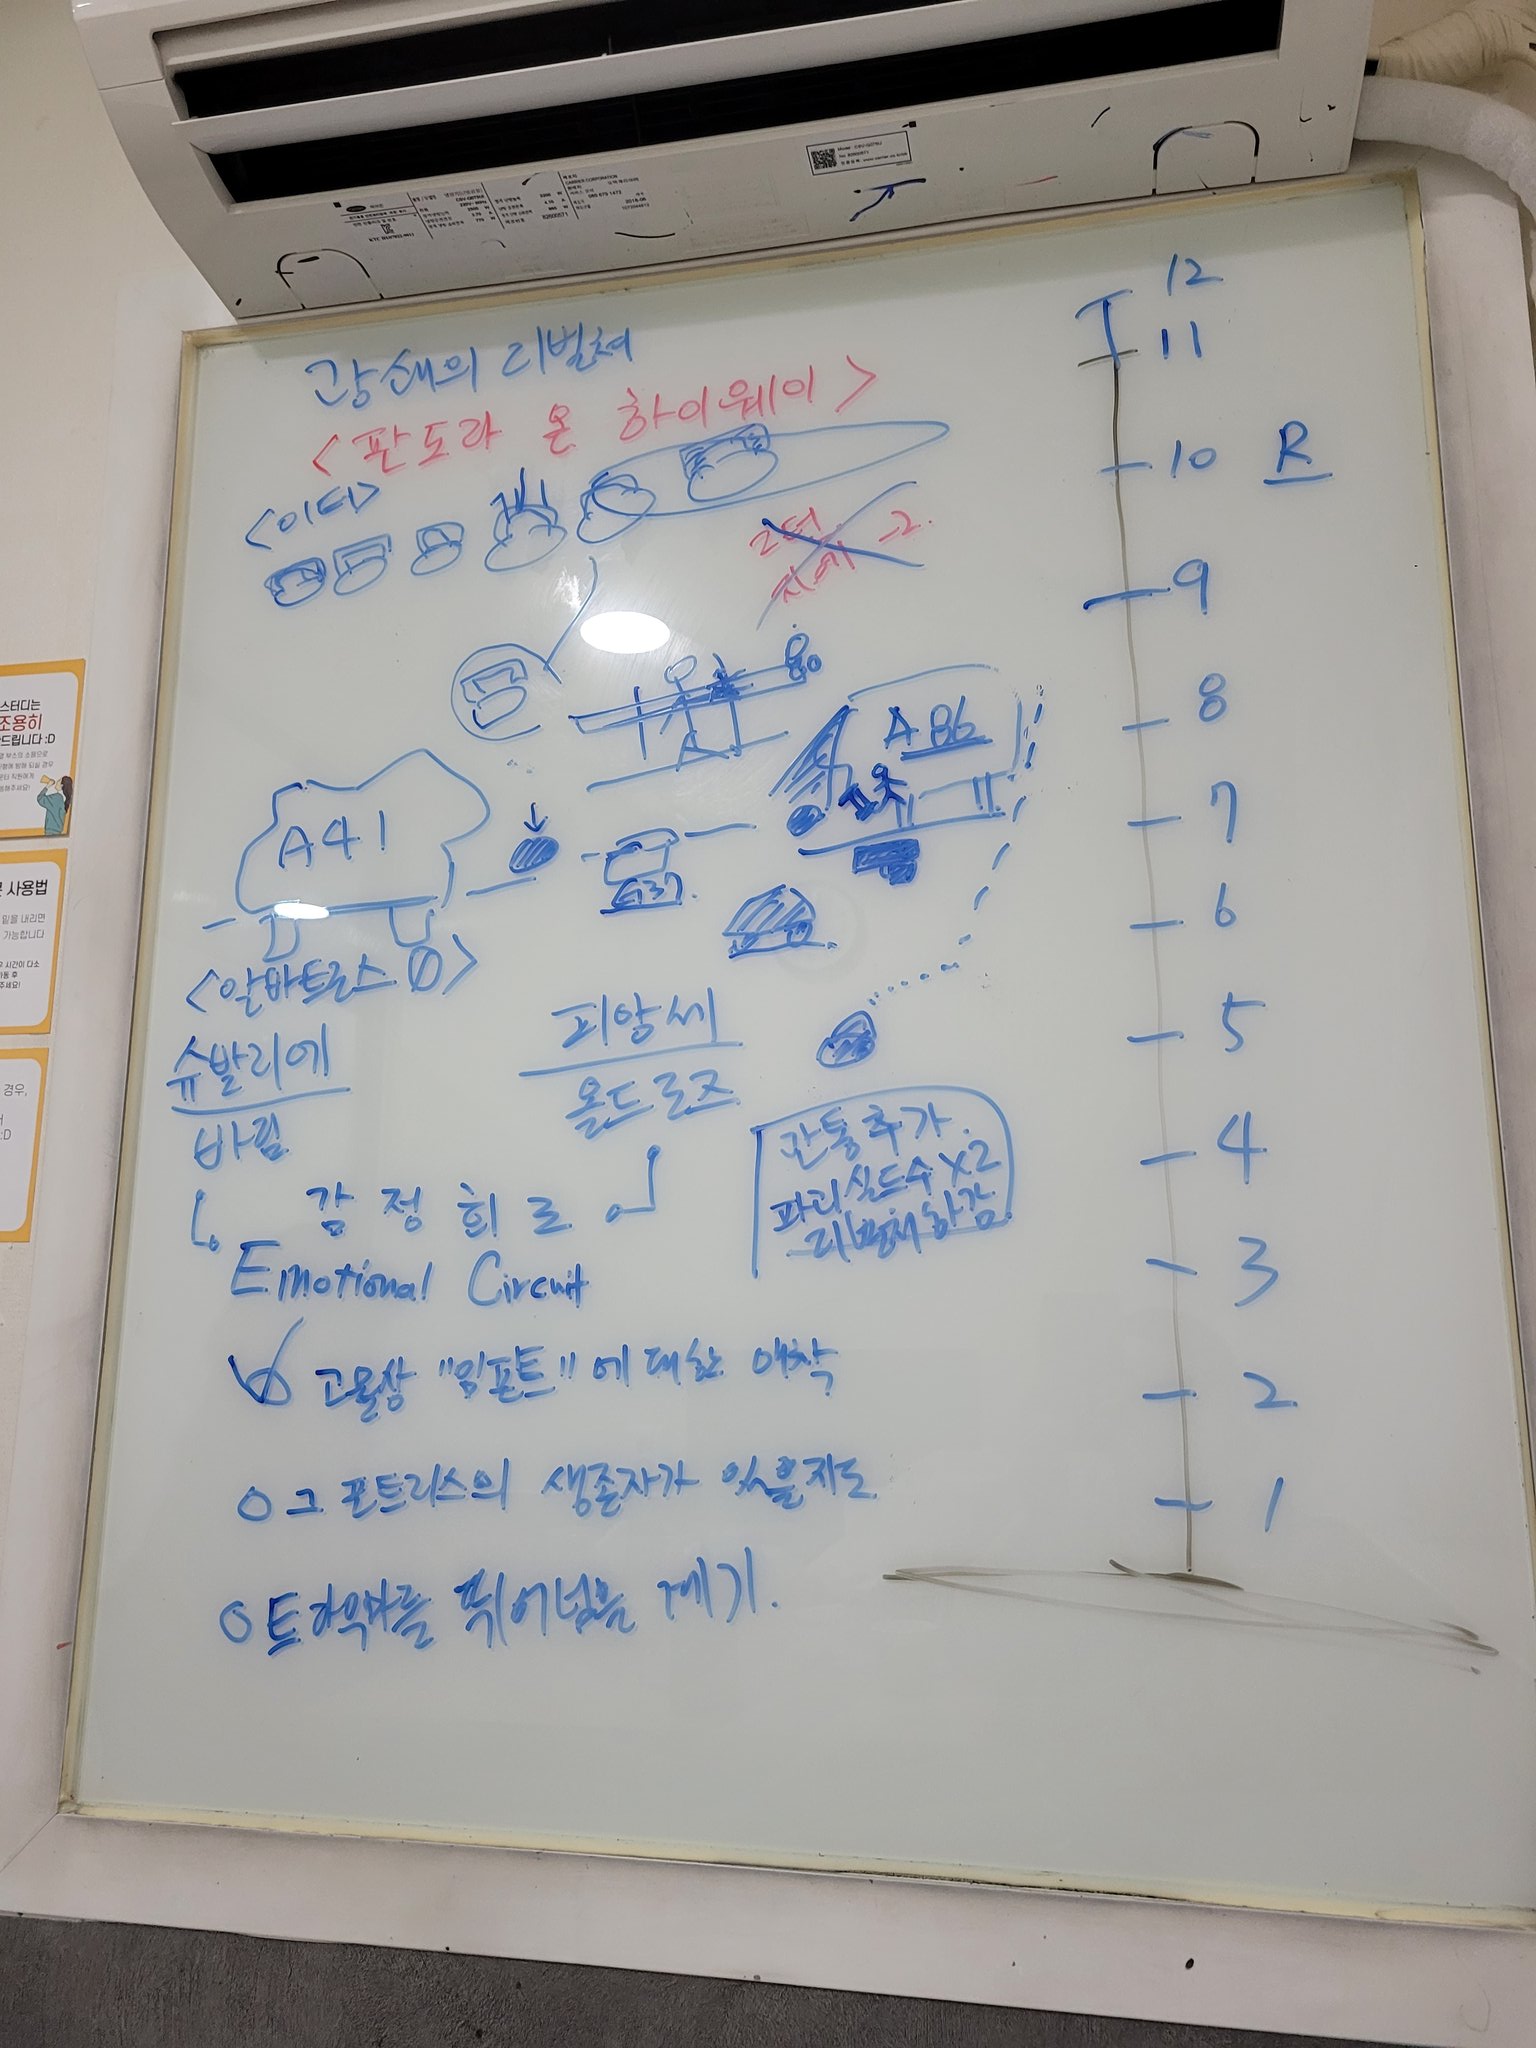 광쇄의 리벌처
<판도라 온 하이웨이>
<이터>
2턴
A86
A41
G37.
<알바트로스 0>
슈발리에
바림
피앙세
올드로즈
관통추가.
파괴실드수×2
리벌처하감.
감정회로
Emotional Circuit
고물상 "임포트"에 대한 애착
그 포트리스의 생존자가 있을지도
트라우마를 뛰어넘을 계기.
12
11
10 R
9
8
7
6
5
4
3
2
1
스터디는
조용히
드립니다 :D
사용법
밑을 내리면
가능합니다
주세요!
경우,
:D
CARRIER CORPORATION